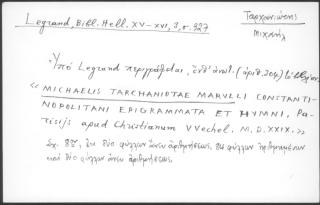 Legrand, Bibl. Hell. XV-XVI, 3, σ. 327
Ταρχανιώτης
Μιχαήλ
Ὑπό Legrand περιγράφεται, ἐνθ' ἀνωτ. (ἀριθ. 304)
« MICHAELIS TARCHANIOTAE MARULLI CONSTANTI-
NOPOLITANI EPIGRAMMATA ET HYMNI. Pa-
risijs apud Christianum VVechel. M.D.XXIX. »
Σχ. 8ον, δύο φύλλων ἄνευ ἀριθμήσεως, φύλλων ἠριθμημένων
καί δύο φύλλων ἄνευ ἀριθμήσεως.